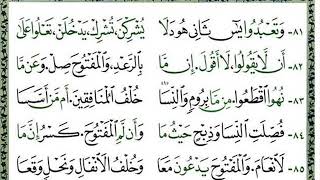 ٨١- وَتَعْبُدُوا يَاسِينَ ثَانِي هُودَ لَا يُشْرِكْنَ تُشْرِكْ يَدْخُلَنْ تَعْلُوا عَلَى
٨٢- أَن لَّا يَقُولُوا، لَا أَقُولَ. إِن مَّا بِالرَّعْدِ. وَالْمَفْتُوحَ صِلْ. وَعَن مَّا
٨٣- نُهُوا اقْطَعُوا. مِن مَّا بِرُومٍ وَالنِّسَا خُلْفُ الْمُنَافِقِينَ. أَم مَّنْ أَسَّسَا
٨٤- فُصِّلَتِ النِّسَا وَذِبْحٍ. حَيْثُ مَا وَأَن لَّمِ الْمَفْتُوحَ. كَسْرُ إِنَّ مَا
٨٥- لَانْعَامَ. وَالْمَفْتُوحَ يَدْعُونَ مَعَا وَخُلْفُ الْأَنْفَالِ وَنَحْلٍ وَقَعَا